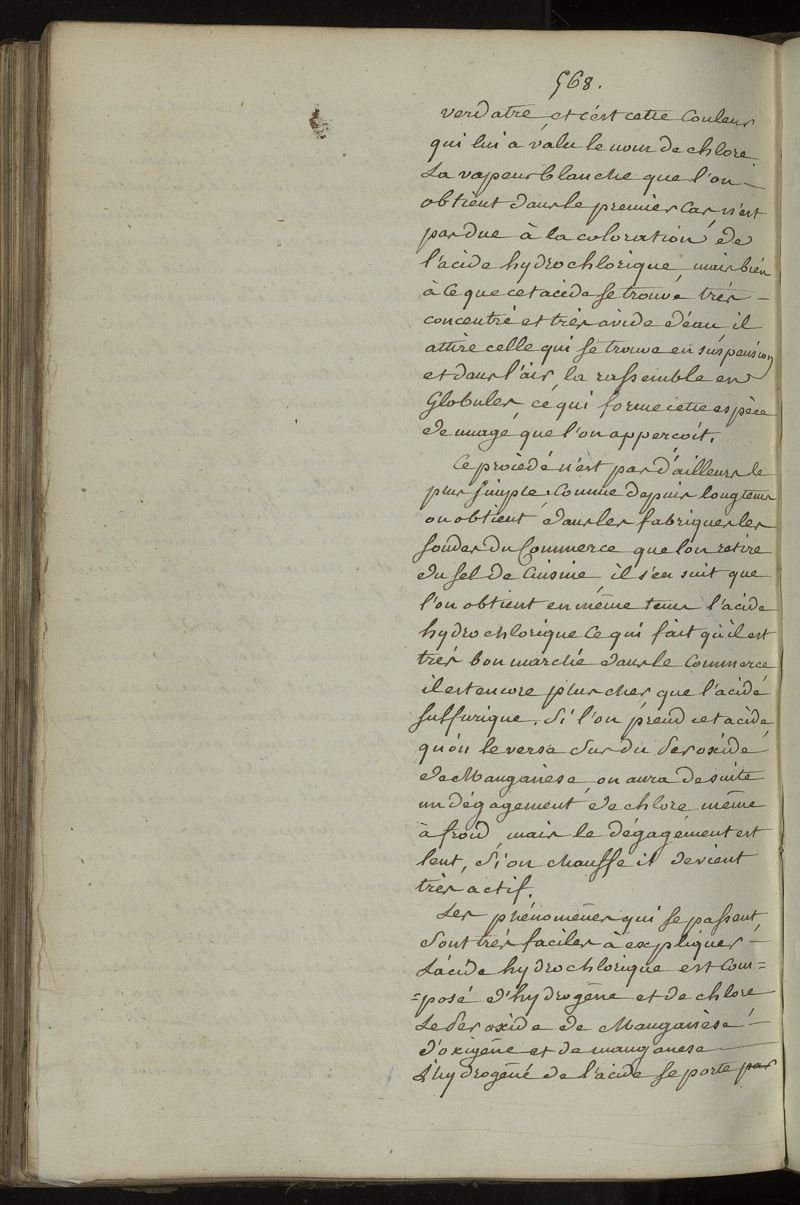 568.
verdatre et c'est cette Couleur
qui lui à valu le nom de chlore
La vapeur blanche que l'on —
obtient dans le premier Cas n'est
pas due à la coloration de
l'acide hydrochlorique, mais bién
à ce que cet acide se trouve trés —
concentré et très avide d'eau, il
attire celle qui se trouve en suspension
et dans l'air, la rassemble en
Globules, ce qui forme cette espèce
de nuage que l'on apperçoit.
Ce procédé n'est pas d'ailleurs le
plus simple. Comme depuis longtems
on obtient dans les fabriques les
soudes du Commerce que l'on retire
du sel de Cuisine, il s'en suit que
l'on obtient en même tems l'acide
hydrochlorique ce qui fait qu'il est
trés bon marché dans le Commerce
il est encore plus cher que l'acide
sulfurique. Si l'on prend cet acide,
qu'on le verse sur du Peroxide
de Manganèse, on aura de suite
un dégagement de chlore, même
à froid, mais le dégagement est
lent, si on chauffe il devient
très actif.
Les phénomènes qui se passent
sont trés faciles à expliquer —
L'acide hydrochlorique est Com=
=posé d'hydrogène et de chlore
Le Peroxide de Manganèse —
d'oxigène et de manganese —
L'hydrogéné de l'acide se porte par